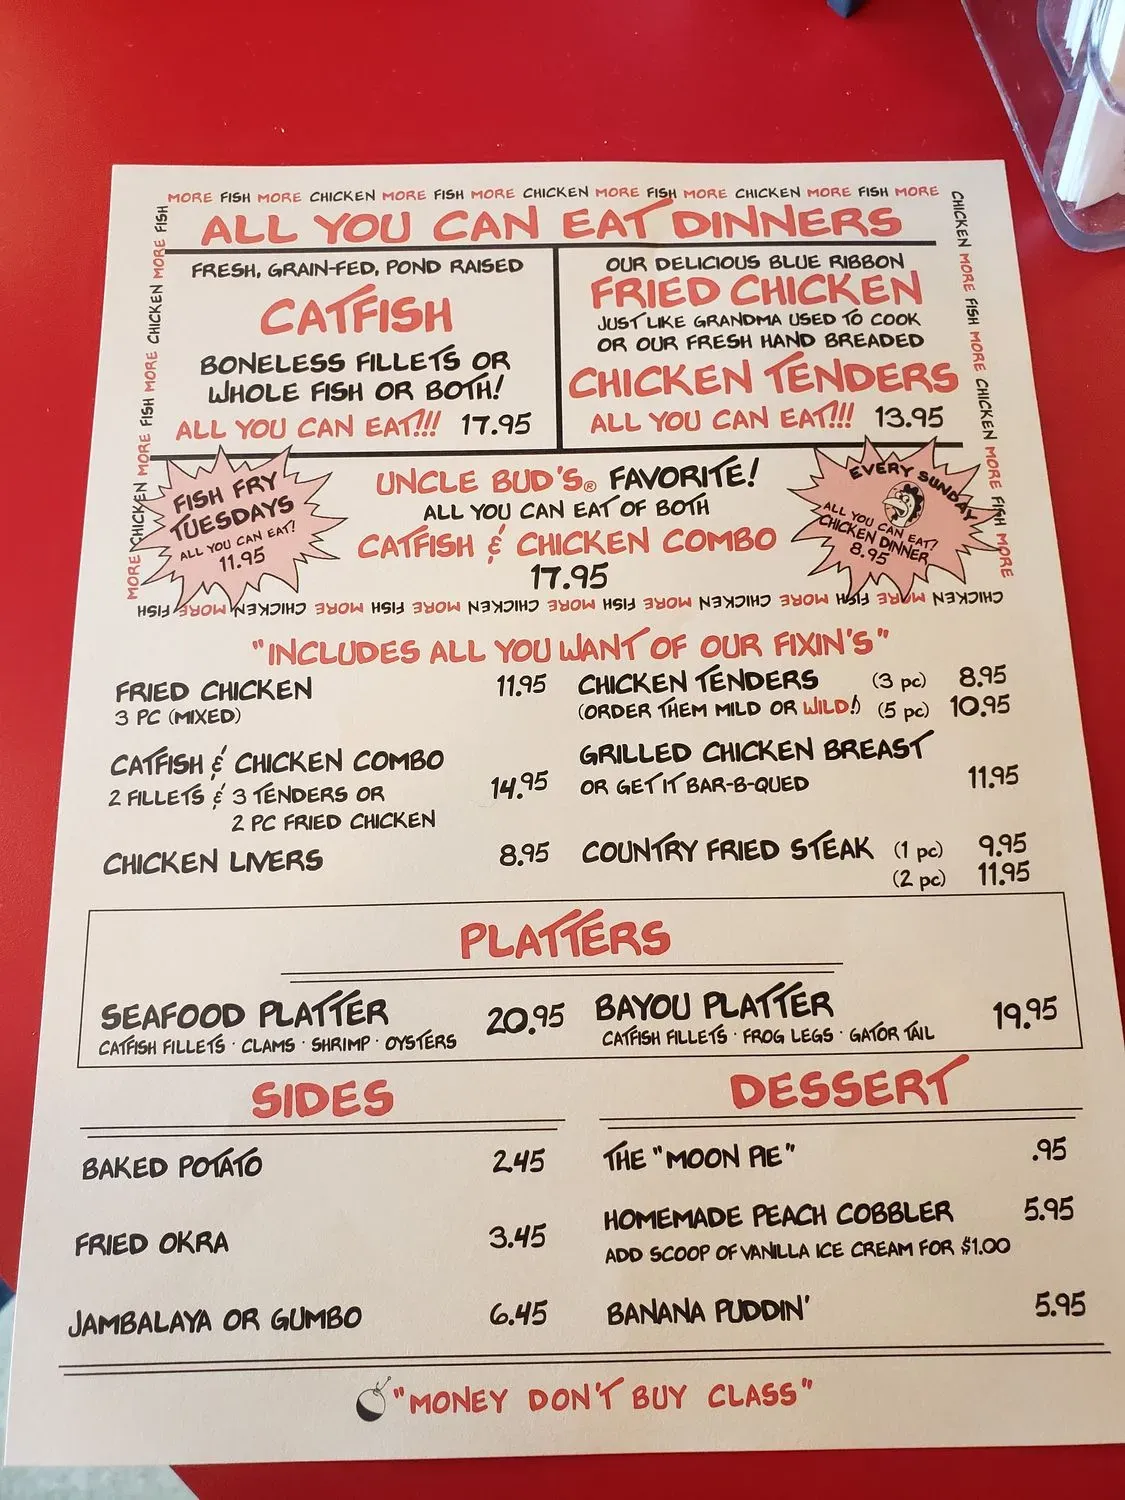 MORE FISH MORE CHICKEN MORE FISH MORE CHICKEN MORE FISH MORE CHICKEN MORE FISH MORE
CHICKEN MORE FISH MORE CHICKEN MORE FISH MORE
CHICKEN MORE FISH MORE CHICKEN MORE FISH MORE CHICKEN MORE FISH MORE CHICKEN MORE FISH
MORE CHICKEN MORE FISH MORE CHICKEN MORE FISH
ALL YOU CAN EAT DINNERS
FRESH, GRAIN-FED, POND RAISED
CATFISH
BONELESS FILLETS OR
WHOLE FISH OR BOTH!
ALL YOU CAN EAT!!! 17.95
OUR DELICIOUS BLUE RIBBON
FRIED CHICKEN
JUST LIKE GRANDMA USED TO COOK
OR OUR FRESH HAND BREADED
CHICKEN TENDERS
ALL YOU CAN EAT!!! 13.95
FISH FRY
TUESDAYS
ALL YOU CAN EAT!
11.95
UNCLE BUD'S® FAVORITE!
ALL YOU CAN EAT OF BOTH
CATFISH & CHICKEN COMBO
17.95
EVERY SUNDAY
ALL YOU CAN EAT!
CHICKEN DINNER
8.95
"INCLUDES ALL YOU WANT OF OUR FIXIN'S"
FRIED CHICKEN 11.95
3 PC (MIXED)
CATFISH & CHICKEN COMBO
2 FILLETS & 3 TENDERS OR 14.95
2 PC FRIED CHICKEN
CHICKEN LIVERS 8.95
CHICKEN TENDERS (3 pc) 8.95
(ORDER THEM MILD OR WILD!) (5 pc) 10.95
GRILLED CHICKEN BREAST
OR GET IT BAR-B-QUED 11.95
COUNTRY FRIED STEAK (1 pc) 9.95
(2 pc) 11.95
PLATTERS
SEAFOOD PLATTER 20.95
CATFISH FILLETS · CLAMS · SHRIMP · OYSTERS
BAYOU PLATTER 19.95
CATFISH FILLETS · FROG LEGS · GATOR TAIL
SIDES
BAKED POTATO 2.45
FRIED OKRA 3.45
JAMBALAYA OR GUMBO 6.45
DESSERT
THE "MOON PIE" .95
HOMEMADE PEACH COBBLER 5.95
ADD SCOOP OF VANILLA ICE CREAM FOR $1.00
BANANA PUDDIN' 5.95
"MONEY DON'T BUY CLASS"